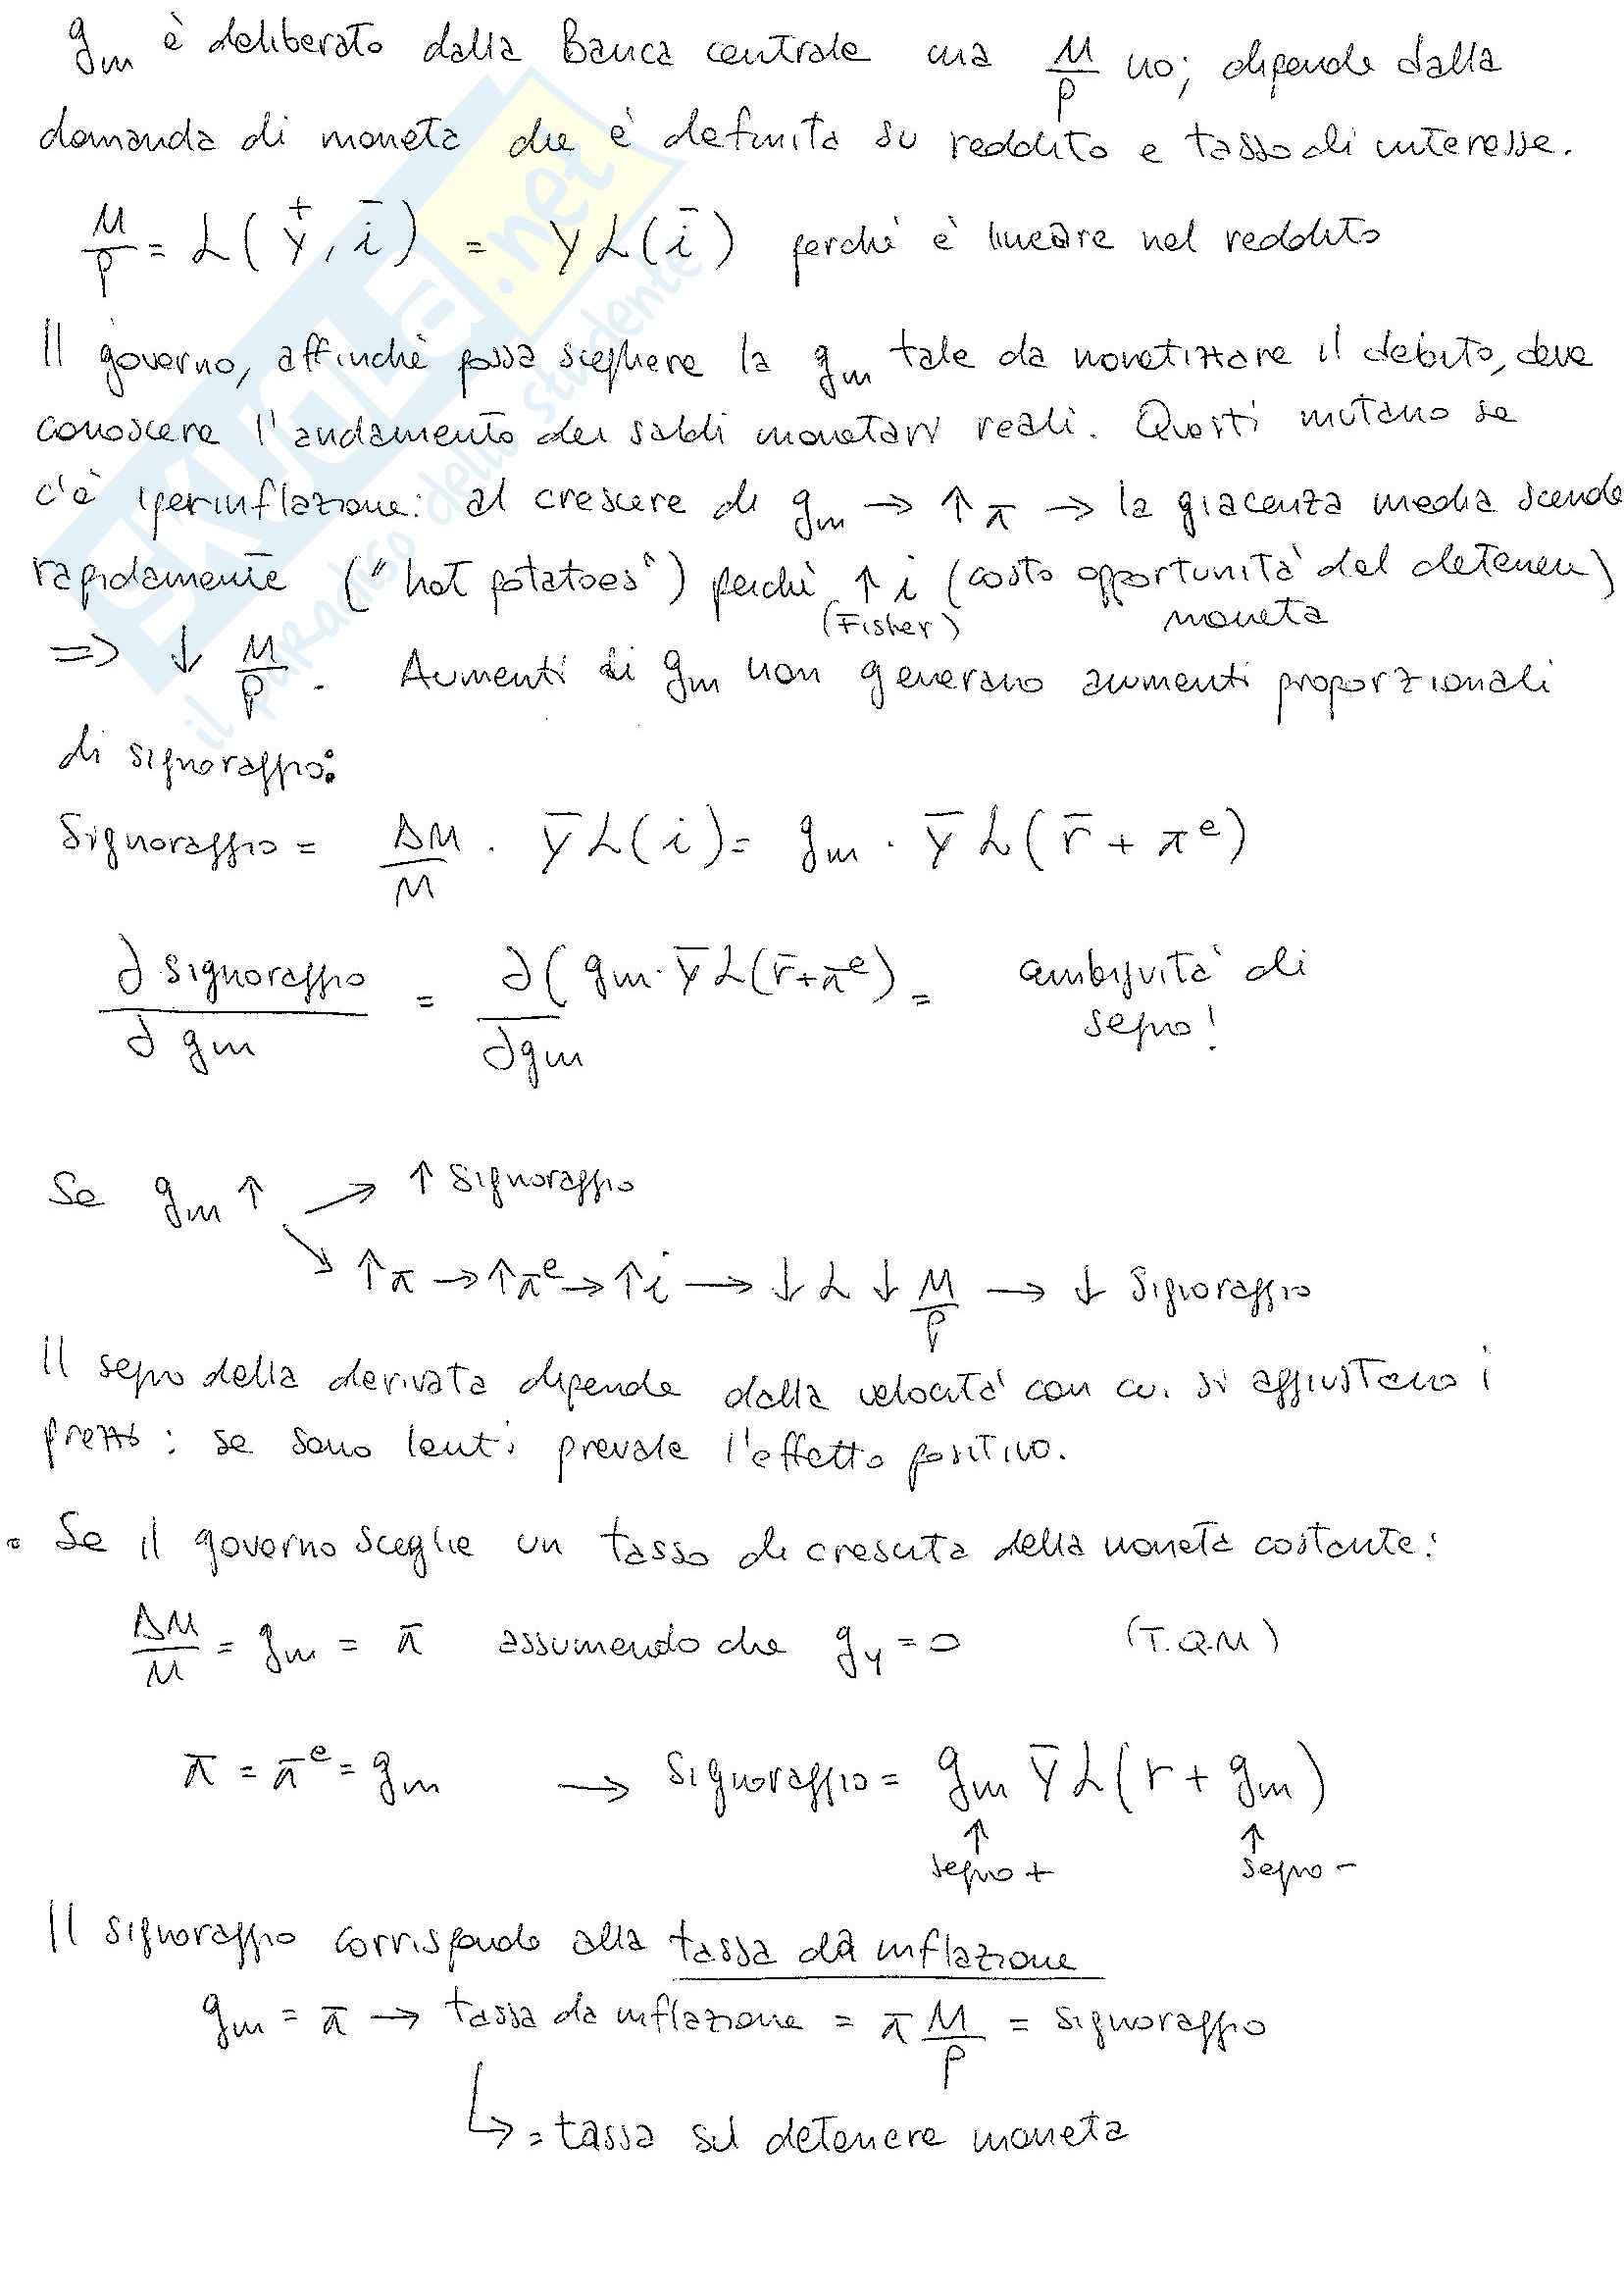 gm è deliberato dalla Banca centrale ma M/P no; dipende dalla
domanda di moneta che è definita su reddito e tasso di interesse.
M/P = L(Y⁺, i⁻) = Y L(i⁻) perché è lineare nel reddito
Il governo, affinché possa scegliere la gm tale da monetizzare il debito, deve
conoscere l'andamento dei saldi monetari reali. Questi mutano se
c'è iperinflazione: al crescere di gm → ↑ π → la giacenza media scende
rapidamente ("hot potatoes") perché ↑ i (costo opportunità del detenere)
(Fisher) moneta
=> ↓ M/P. Aumenti di gm non generano aumenti proporzionali
di signoraggio:
Signoraggio = ΔM/M · Ȳ L(i) = gm · Ȳ L(r̄ + πᵉ)
∂ signoraggio / ∂ gm = ∂(gm · Ȳ L(r̄+πᵉ) / ∂gm = ambiguità di
segno!
Se gm ↑ → ↑ Signoraggio
↘ ↑π → ↑πᵉ → ↑i → ↓ L ↓ M/P → ↓ Signoraggio
Il segno della derivata dipende dalla velocità con cui si aggiustano i
prezzi: se sono lenti prevale l'effetto positivo.
• Se il governo sceglie un tasso di crescita della moneta costante:
ΔM/M = gm = π assumendo che gY = 0 (T.Q.M)
π = πᵉ = gm → Signoraggio = gm Ȳ L(r + gm)
↑ ↑
segno + segno -
Il signoraggio corrisponde alla tassa da inflazione
gm = π → tassa da inflazione = π M/P = signoraggio
↳ = tassa sul detenere moneta
SKUOLA.net
il paradiso dello studente